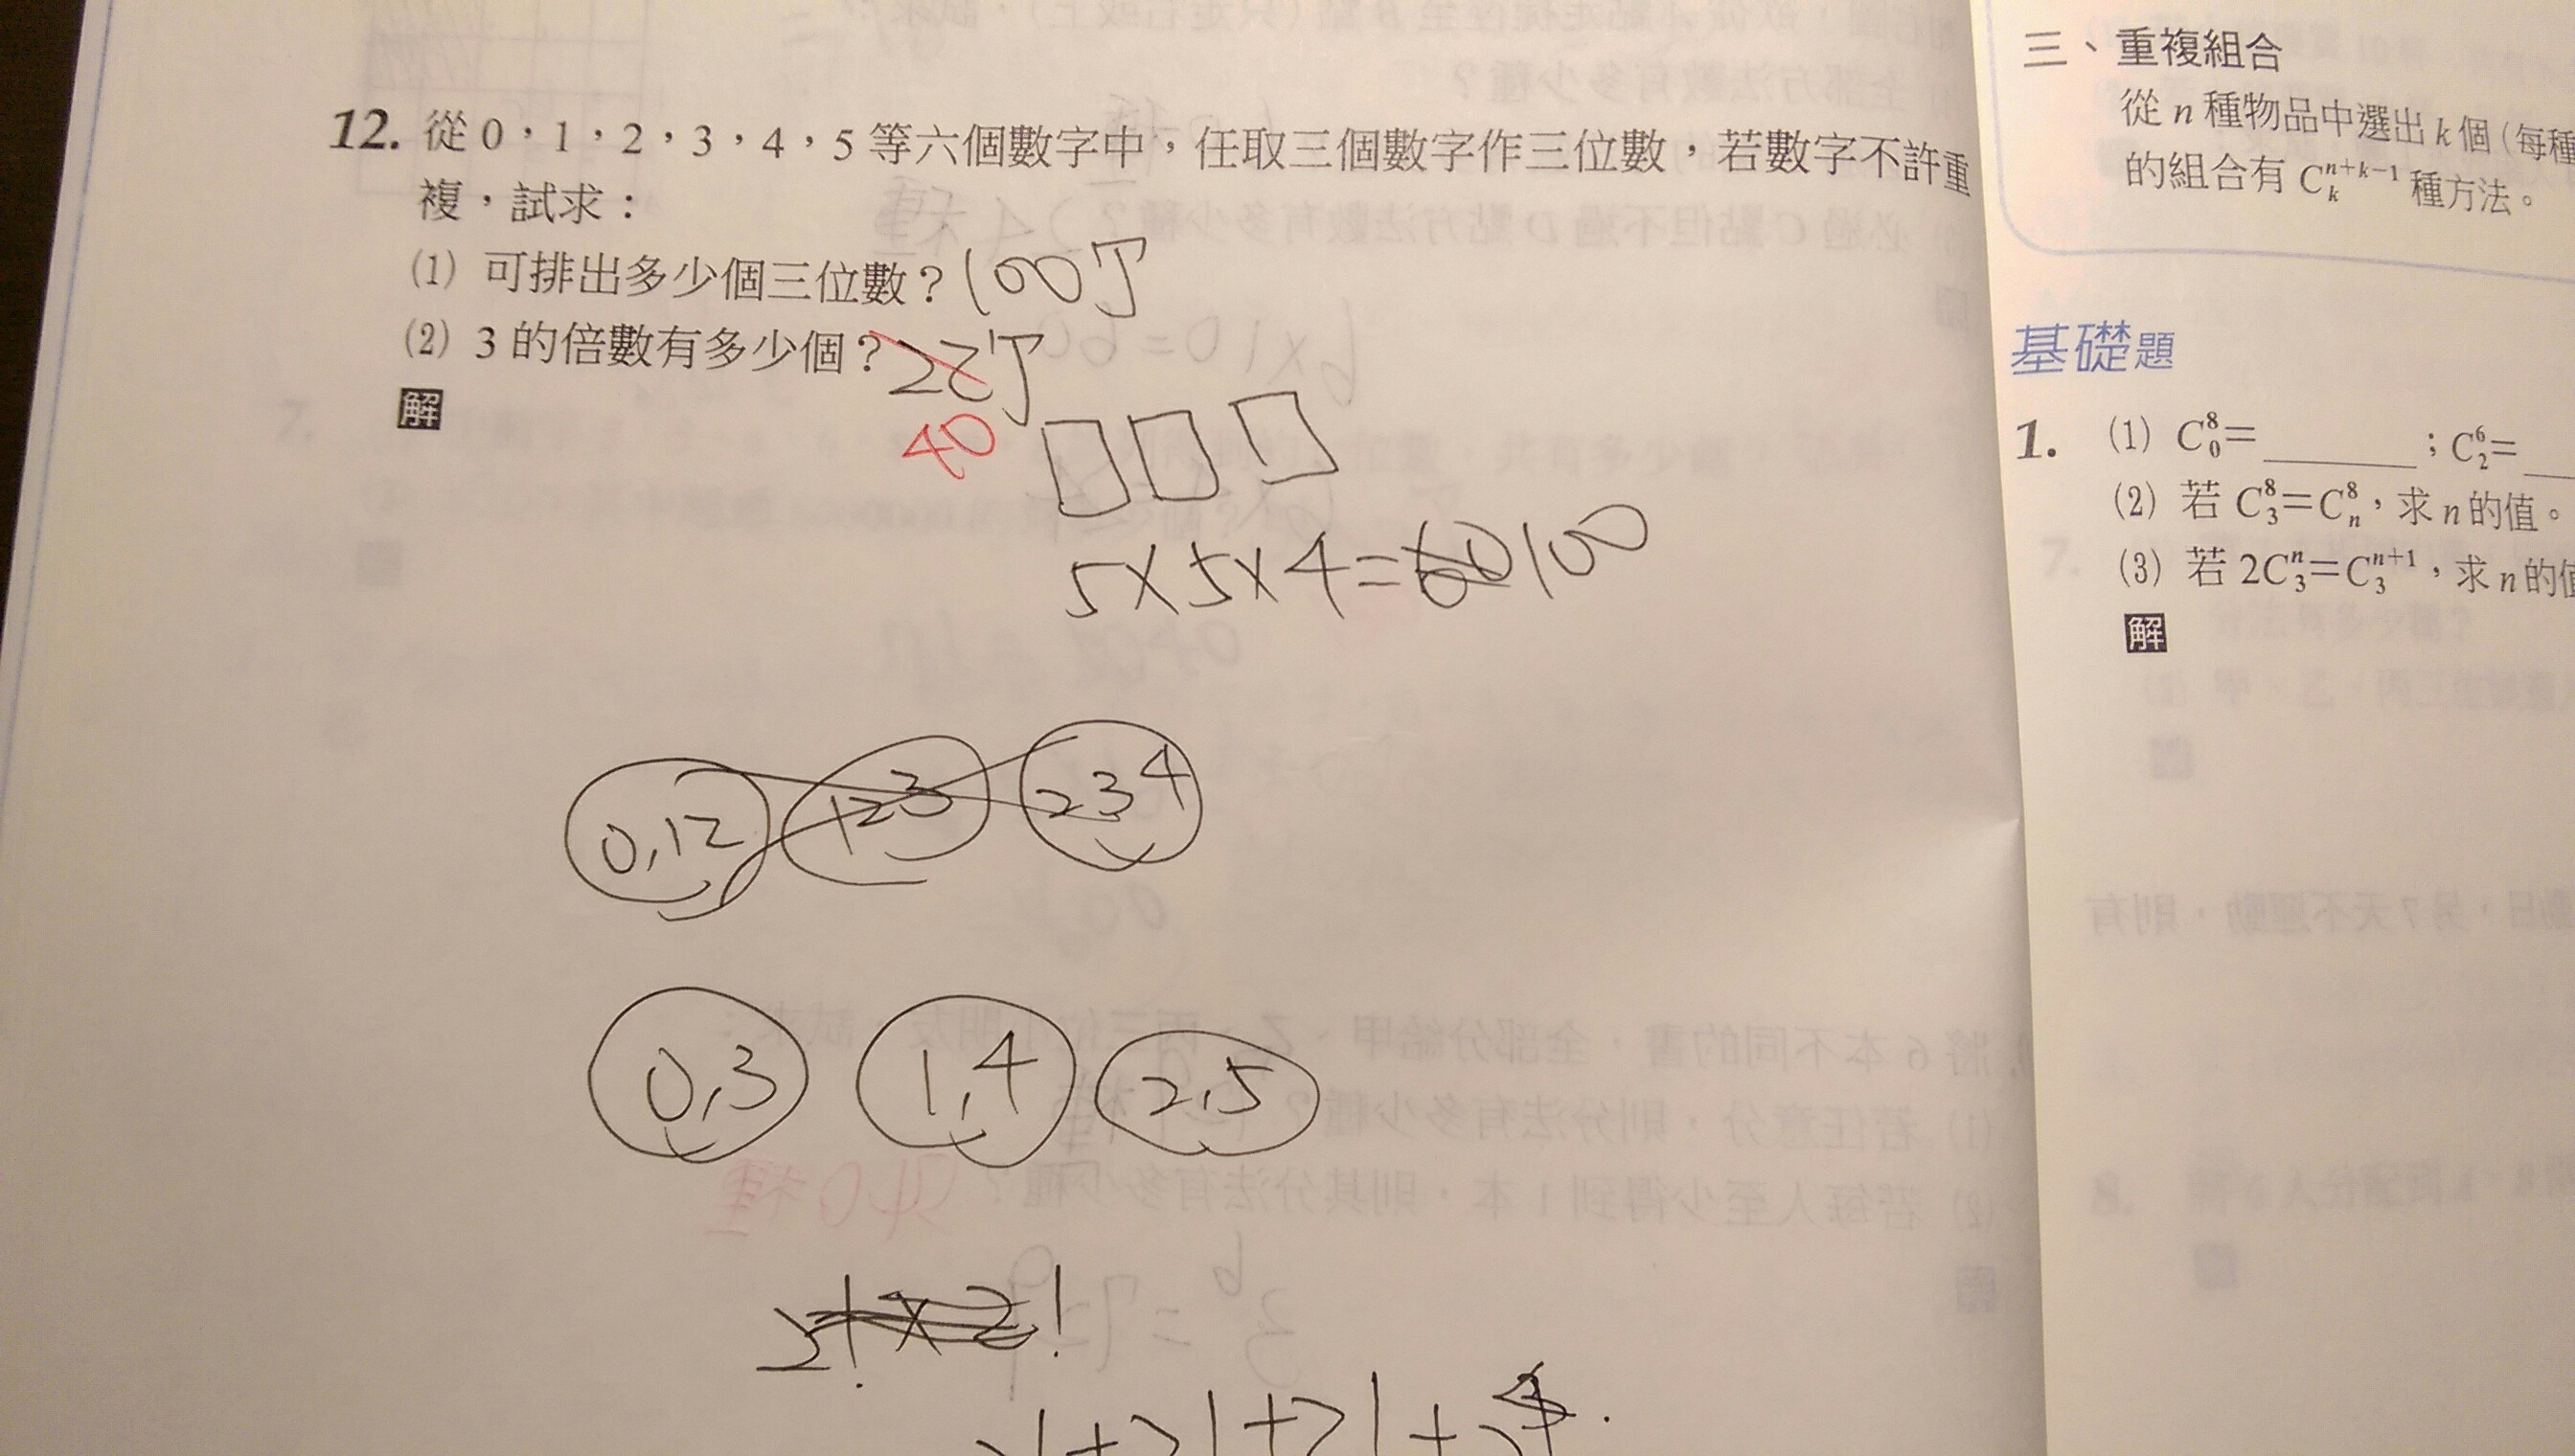 12. 從0，1，2，3，4，5等六個數字中，任取三個數字作三位數，若數字不許重
複，試求：
(1) 可排出多少個三位數？100丁
(2) 3的倍數有多少個？
40
解
5×5×4=60 100
0,12 123 234
0,3 1,4 2,5
2!×2!
三、重複組合
從n種物品中選出k個(每種
的組合有 C^{n+k-1}_k 種方法。
基礎題
1. (1) C^8_0=______；C^6_2=
(2) 若 C^8_3=C^8_n，求n的值。
(3) 若 2C^n_3=C^{n+1}_3，求n的值
解